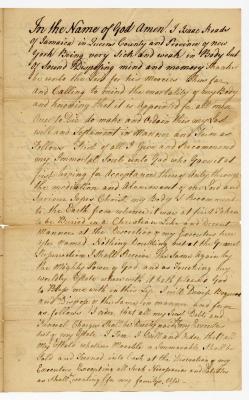 In the Name of God Amen. I Isaac Rhodes
of Jamaica in Queens County and Province of New
York Being very Sick and weak in Body but
of Sound Disposing mind and memory Thanks
be unto the Lord for his Mercies Therefore
and Calling to Mind the mortality of my Body
and knowing that it is Appointed for all men
Once to Die do make and ordain this my Last
will and Testament in Manner and Form as
Follows First of all I Give and Recommend
my Immortal Soul unto God who Gave it at
first hoping for Acceptance thereof only through
the mediation and Atonement of the Lord and
Saviour Jesus Christ my Body I Recommend
to the Earth from whence it was at first Taken
to be Buried in a Christian Like and Decent
Manner at the Discretion of my Executors here
after Named Nothing Doubting but at the General
Resurrection I Shall Receive the Same Again by
the Mighty Power of God and as Touching my
worldly Estate wherewith it hath pleased God
to Bless me with in this Life I will Devise Bequeath
and Dispose of the same in manner and form
as follows I order that all my Just Debts and
Funeral Charges Shall be
out of my Estate I
my Estate whether Movable or Immovable Shall be
Sold and Turned into Cash at the Discretion of my
Executors Excepting all Such
as Shall
my family